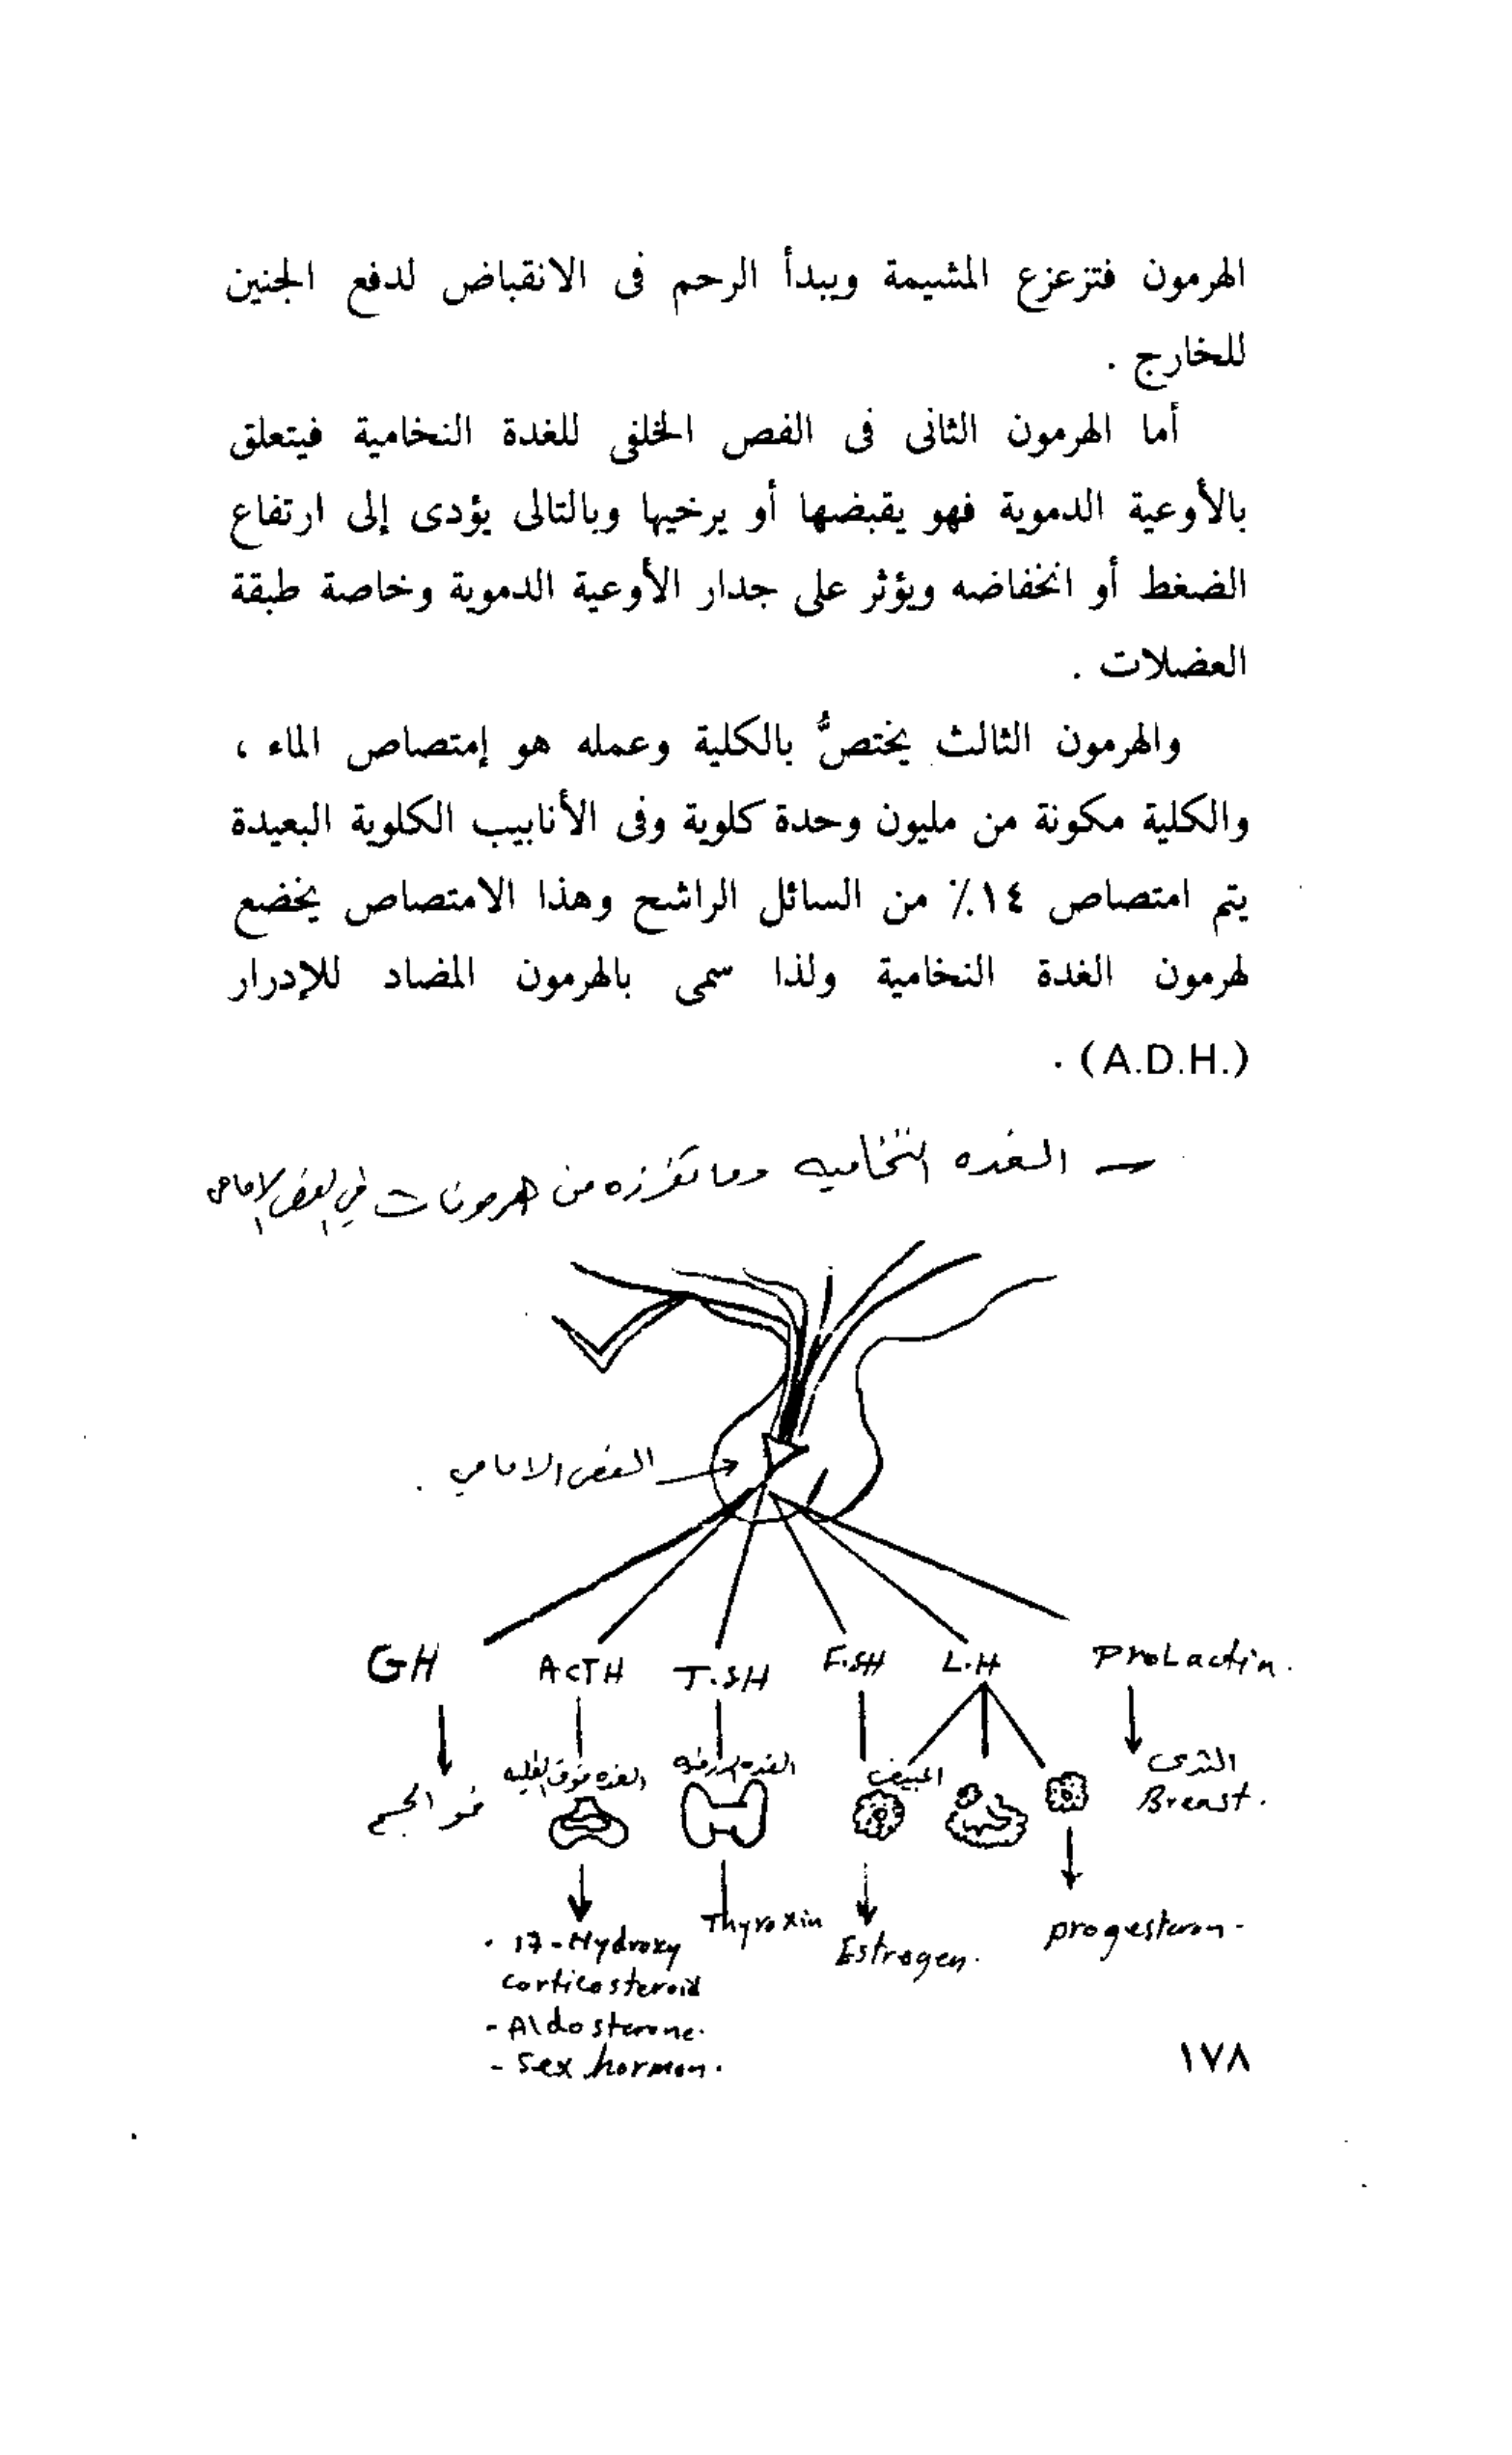 الهرمون فتزعزع المشيمة ويبدأ الرحم فى الانقباض لدفع الجنين
للخارج .
أما الهرمون الثانى فى الفص الخلفى للغدة النخامية فيتعلق
بالأوعية الدموية فهو يقبضها أو يرخيها وبالتالى يؤدى إلى ارتفاع
الضغط أو انخفاضه ويؤثر على جدار الأوعية الدموية وخاصة طبقة
العضلات .
والهرمون الثالث يختصُّ بالكلية وعمله هو إمتصاص الماء ،
والكلية مكونة من مليون وحدة كلوية وفى الأنابيب الكلوية البعيدة
يتم امتصاص ١٤٪ من السائل الراشح وهذا الامتصاص يخضع
لهرمون الغدة النخامية ولذا سمى بالهرمون المضاد للإدرار
(A.D.H.) .
— الغده النخاميه وما تفرزه من هرمونات في الفص الامامى
الفص الامامي .
GH ACTH T.SH F.SH L.H ProLactin.
نمو الجسم الغده فوق الكليه الغده الدرقيه المبيض الثدى
Breast.
17-Hydroxy corticosteroid
- Aldosterone.
- Sex hormon.
Thyroxin
Estrogen.
progesteron-
١٧٨